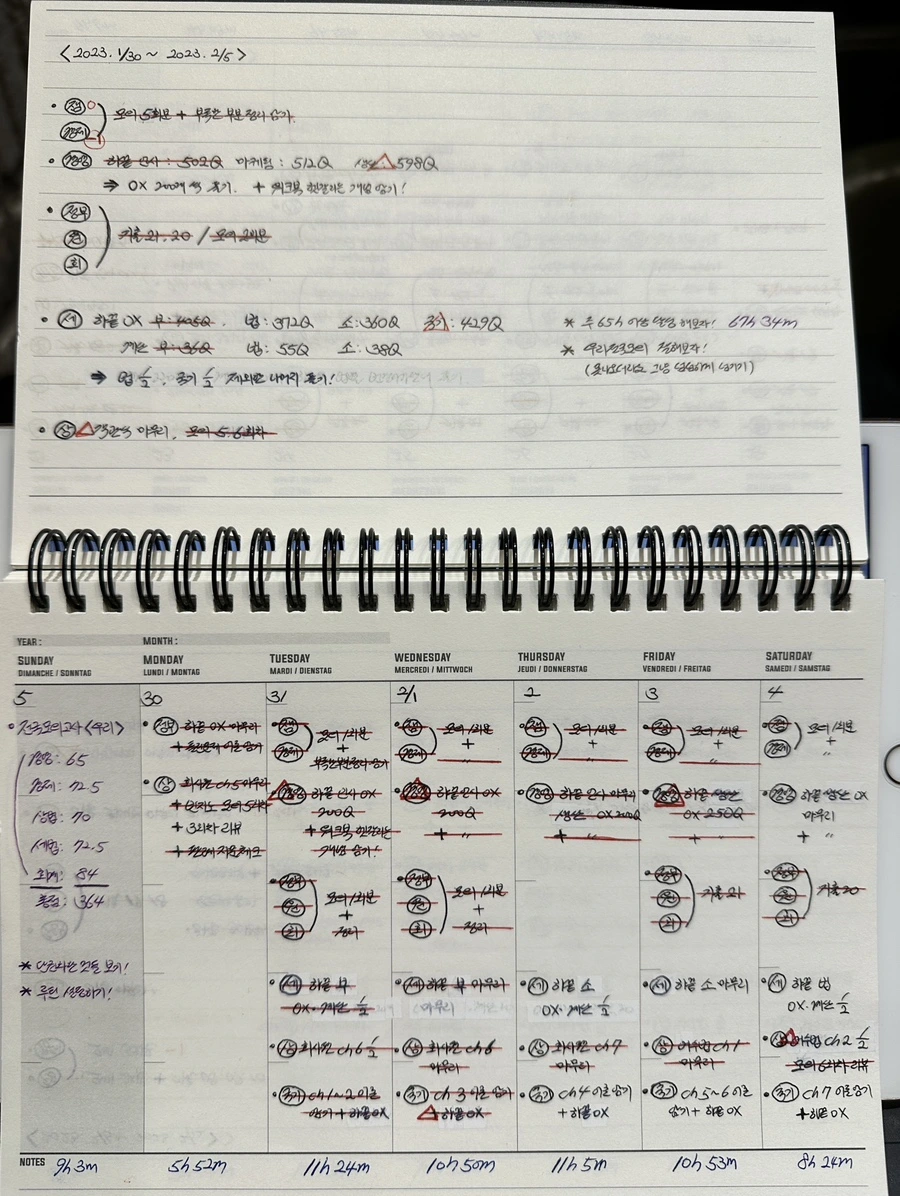 <2023. 1/30 ~ 2023. 2/5>
• 잽
경제
모의 5회분 + 부족한 부분 정리 암기
• 경영 하끝 인사 : 502Q 마케팅 : 512Q 생산 : 598Q
⇒ OX 200개씩 풀기. + 워크북 헷갈리는 개념 암기!
• 정부
원
회
기출 21, 20 / 모의 2회분
• 세 하끝 OX 부 : 405Q. 법 : 372Q 소 : 360Q 국기 : 429Q
계산 부 : 36Q 법 : 55Q 소 : 38Q
⇒ 법 1/2, 국기 1/2 제외한 나머지 풀기!
* 주 65h 이상 달성 해보자! 67h 34m
* 우리전모의 잘해보자!
• 상 객관식 마무리, 모의 5,6회차
YEAR :
MONTH :
SUNDAY
DIMANCHE / SONNTAG
MONDAY
LUNDI / MONTAG
TUESDAY
MARDI / DIENSTAG
WEDNESDAY
MERCREDI / MITTWOCH
THURSDAY
JEUDI / DONNERSTAG
FRIDAY
VENDREDI / FREITAG
SATURDAY
SAMEDI / SAMSTAG
5
• 전국모의고사<우리>
경영: 65
경제: 72.5
상법: 70
세법: 72.5
회계: 84
총점: 364
* 루틴 실행하기!
30
• 정부 하끝 OX 마무리
• 상 회사법 ch5 마무리
+ 모의 5회차
+ 3회차 리뷰
31
• 잽
경제
모의 1회분
+
부족한부분정리 암기
• 경영 하끝 인사 OX
200Q
+ 워크북 헷갈리는
개념 암기!
• 정부
원
회
모의 1회분
+
정리
• 세 하끝 부
OX·계산 1/2
• 상 회사법 ch6 1/2
• 국기 ch1~2 이론
암기 + 하끝OX
2/1
• 잽
경제
모의 1회분
+
〃
• 경영 하끝 인사 OX
200Q
+ 〃
• 정부
원
회
모의 1회분
+
정리
• 세 하끝 부 마무리
마무리
• 상 회사법 ch6
마무리
• 국기 ch3 이론 암기
하끝OX
2
• 잽
경제
모의 1회분
+
〃
• 경영 하끝 인사 마무리
생산 OX 200Q
+ 〃
• 세 하끝 소
OX·계산 1/2
• 상 회사법 ch7
마무리
• 국기 ch4 이론암기
+ 하끝OX
3
• 잽
경제
모의 1회분
+
〃
• 경영 하끝 생산
OX 250Q
• 정부
원
회
기출 21
• 세 하끝 소 마무리
• 상 어수법 ch1
마무리
• 국기 ch5~6 이론
암기 + 하끝OX
4
• 잽
경제
모의 1회분
+
〃
• 경영 하끝 생산 OX
마무리
+ 〃
• 정부
원
회
기출 20
• 세 하끝 법
OX·계산 1/2
• 상 어수법 ch2 1/2
모의 6회차 리뷰
• 국기 ch7 이론암기
+ 하끝OX
NOTES
9h 3m
5h 52m
11h 24m
10h 50m
11h 5m
10h 53m
8h 24m